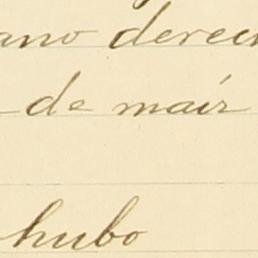 ano derec
de mair
hubo